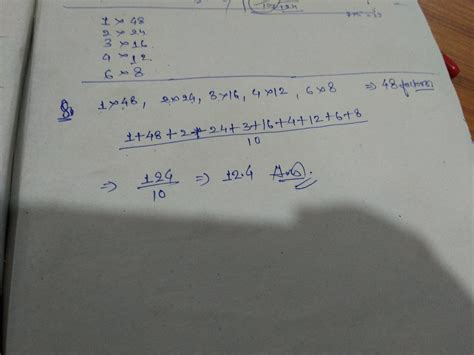 1 × 48
2 × 24
3 × 16
4 × 12
6 × 8
1×48, 2×24, 3×16, 4×12, 6×8 ⇒ 48 factors
1+48+2+24+3+16+4+12+6+8
10
⇒ 124/10 ⇒ 12.4 Ans